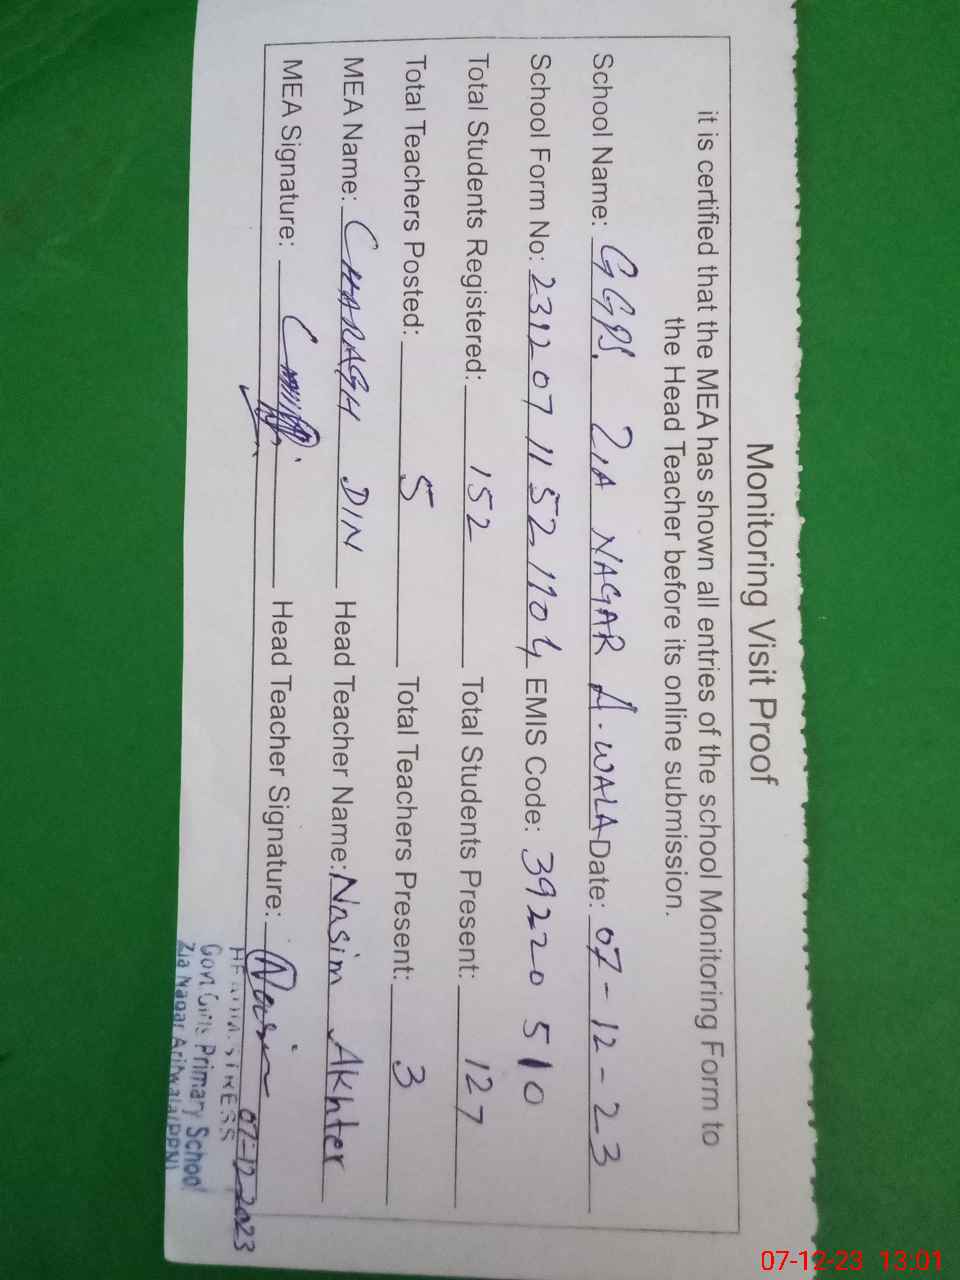 Monitoring Visit Proof
it is certified that the MEA has shown all entries of the school Monitoring Form to
the Head Teacher before its online submission.
School Name: GGPS. ZIA NAGAR A.WALA Date: 07-12-23
School Form No: 231207 1152 1104 EMIS Code: 39220510
Total Students Registered: 152 Total Students Present: 127
Total Teachers Posted: 5 Total Teachers Present: 3
MEA Name: CHARAGH DIN Head Teacher Name: Nasim Akhter
MEA Signature: Head Teacher Signature: Nasim
07-12-2023
HEADMISTRESS
Govt Girls Primary School
Zia Nagar Arifwala (PPN)
07-12-23 13:01